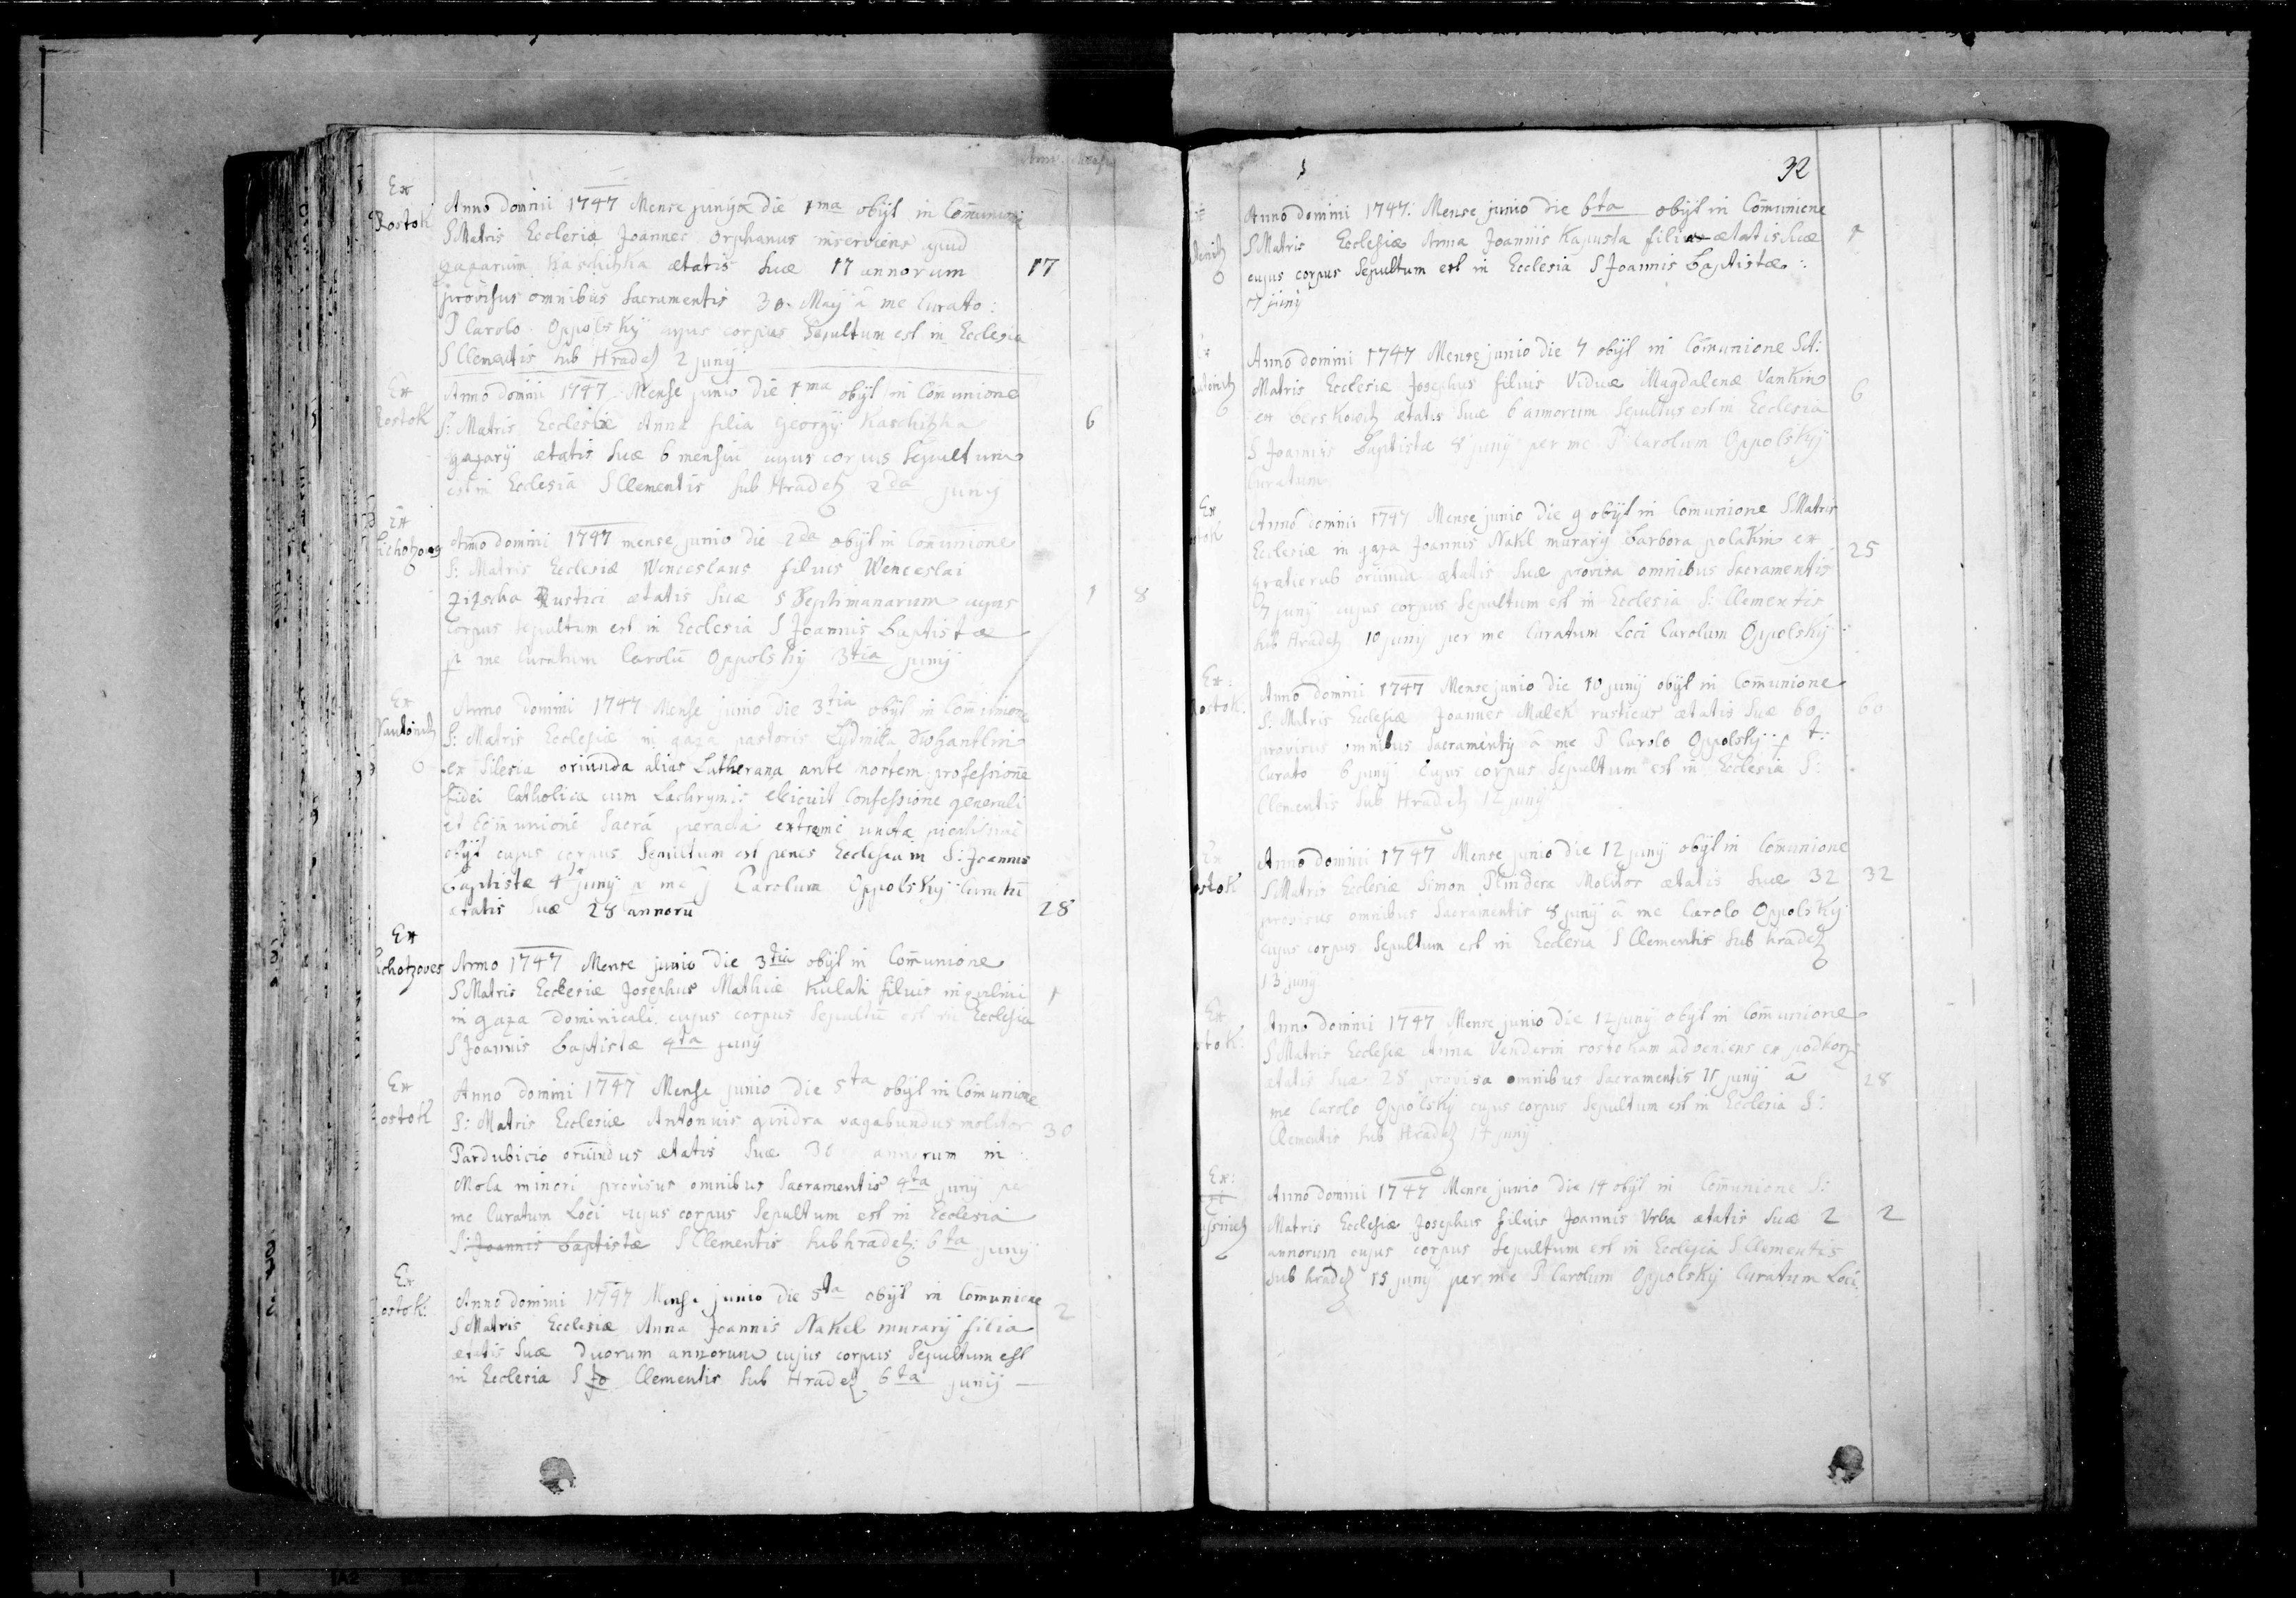 Ex
Rostok
Anno domini 1747 Mense junÿ die 1ma obÿt in Communi
S Matris Ecclesiæ Joannes Orphanus inserviens apud
Kaschikka ætatis Suæ 17 annorum 17
provisus omnibus Sacramentis 30 Maÿ â me Curato:
P Carolo Oppolskÿ cujus corpus Sepultum est in Ecclesia
S Clementis sub Hradetz 2 junÿ
Ex
Rostok
Anno domini 1747 Mense junio die 1ma obÿt in Comunione
S: Matris Ecclesiæ Anna filia Georgÿ Kaschikka 6
ætatis Suæ 6 mensiu cujus corpus Sepultum
est in Ecclesia S Clementis sub Hradetz 2da junÿ
Ex
Anno domini 1747 mense junio die 2da obÿt in Com̄unione
S: Matris Ecclesiæ Wenceslaus filius Wenceslai
Rustici ætatis Suæ 5 Septimanarum cujus 1 8
corpus Sepultum est in Ecclesia S Joannis Baptistæ
p me Curatum Carolū Oppolskÿ 3tia junÿ
Ex
Anno domini 1747 Mense junio die 3tia obÿt in Com̄unione
S: Matris Ecclesiæ in gaza pastoris Lydmila
ex Silesia oriunda alias Lutherana ante mortem professione
fidei Catholica cum Lachrymis elicuit Confessione generali
et Com̄unione Sacrâ peracta extreme uncta
obÿt cujus corpus Sepultum est penes Ecclesiam S: Joannis
Baptistæ 4 junÿ p me Carolum Oppolskÿ Curatū
ætatis Suæ 28 annorū 28
Ex
Lichotzoves
Anno 1747 Mense junio die 3tia obÿt in Com̄unione
S Matris Ecclesiæ Josephus Mathiæ Kulati filius inquilini 1
in gaza Dominicali cujus corpus Sepultū est in Ecclesia
S Joannis Baptistæ 4ta junÿ
Ex
Rostok
Anno domini 1747 Mense junio die 5ta obÿt in Comunione
S: Matris Ecclesiæ Antonius gindra vagabundus molitor 30
Pardubicio oriūndus ætatis Suæ 30 annorum in
Mola minori provisus omnibus Sacramentis 4ta junÿ pe
me Curatum Loci cujus corpus Sepultum est in Ecclesia
S: Joannis Baptistæ S Clementis sub hradetz: 6ta junÿ
Ex
Rostok:
Anno domini 1747 Mense junio die 5ta obÿt in Comunione 2
S Matris Ecclesiæ Anna Joannis Nakel murarÿ filia
ætatis Suæ Duorum annorum cujus corpus Sepultum est
in Ecclesia S Jo Clementis sub Hradetz 6ta junÿ
32
Anno domini 1747: Mense junio die 6ta obÿt in Comunione
S Matris Ecclesiæ Anna Joannis Kapusta filia ætatis Suæ 1
cujus corpus Sepultum est in Ecclesia S Joannis Baptistæ:
7 junÿ
Ex
Anno domini 1747 Mense junio die 7 obÿt in Comunione Sct:
Matris Ecclesiæ Josephus filius Viduæ Magdalenæ Vankin 6
ex ætatis Suæ 6 annorum Sepultus est in Ecclesia
S Joannis Baptistæ 8 junÿ per me P Carolum Oppolskÿ
Curatum
Ex
Anno domini 1747 Mense junio die 9 obÿt in Comunione S Matris
Ecclesiæ in gaza Joannis Nakl murarÿ Barbora polakin ex 25
oriūnda ætatis Suæ provisa omnibus Sacramentis
7 junÿ cujus corpus Sepultum est in Ecclesia S: Clementis
sub Hradetz 10 junÿ per me Curatum Loci Carolum Oppolskÿ:
Ex:
Rostok.
Anno domini 1747 Mense junio die 10 junÿ obÿt in Com̄unione
S: Matris Ecclesiæ Joannes Malek rusticus ætatis Suæ 60 60
provisus omnibus Sacramentÿ â me P Carolo Oppolskÿ p t:
Curato 6 junÿ Cujus corpus Sepultum est in Ecclesia S:
Clementis Sub Hradetz 12 junÿ
Ex
Rostok
Anno domini 1747 Mense junio die 12 junÿ obÿt in Com̄unione
S Matris Ecclesiæ Simon Molitor ætatis Suæ 32 32
provisus omnibus Sacramentis 8 junÿ â me Carolo Oppolskÿ
cujus corpus Sepultum est in Ecclesia S Clementis sub hradetz
13 junÿ
Ex
Anno domini 1747 Mense junio die 12 junÿ obÿt in Com̄unione
S Matris Ecclesiæ Anna Venderin rostokam adveniens ex
ætatis Suæ 28 provisa omnibus Sacramentis 11 junÿ â 28
me Carolo Oppolskÿ cujus corpus Sepultum est in Ecclesia S:
Clementis sub Hradetz 14 junÿ
Ex:
Anno domini 1747 Mense junio die 14 obÿt in Com̄unione S:
Matris Ecclesiæ Josephus filius Joannis Vrba ætatis Suæ 2 2
annorum cujus corpus Sepultum est in Ecclesia S Clementis
sub hradetz 15 junÿ per me P Carolum Oppolskÿ Curatum Loci